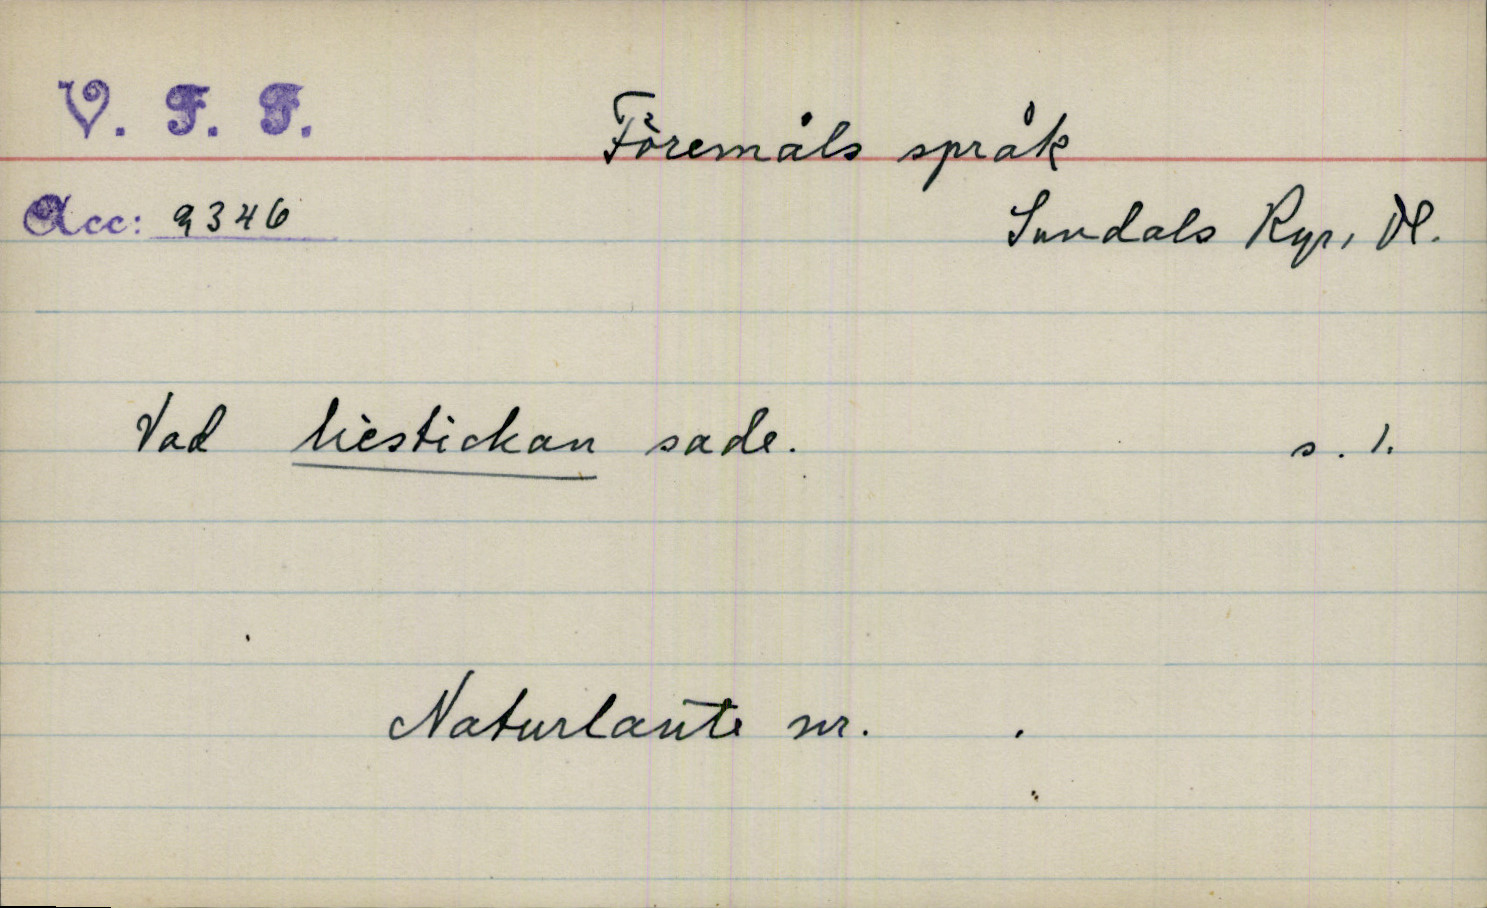 V. F. F.
Föremåls språk
Acc: 2346
Sundals Ryr, Dl.
Vad liestickan sade. s. 1.
Naturlaute nr. .